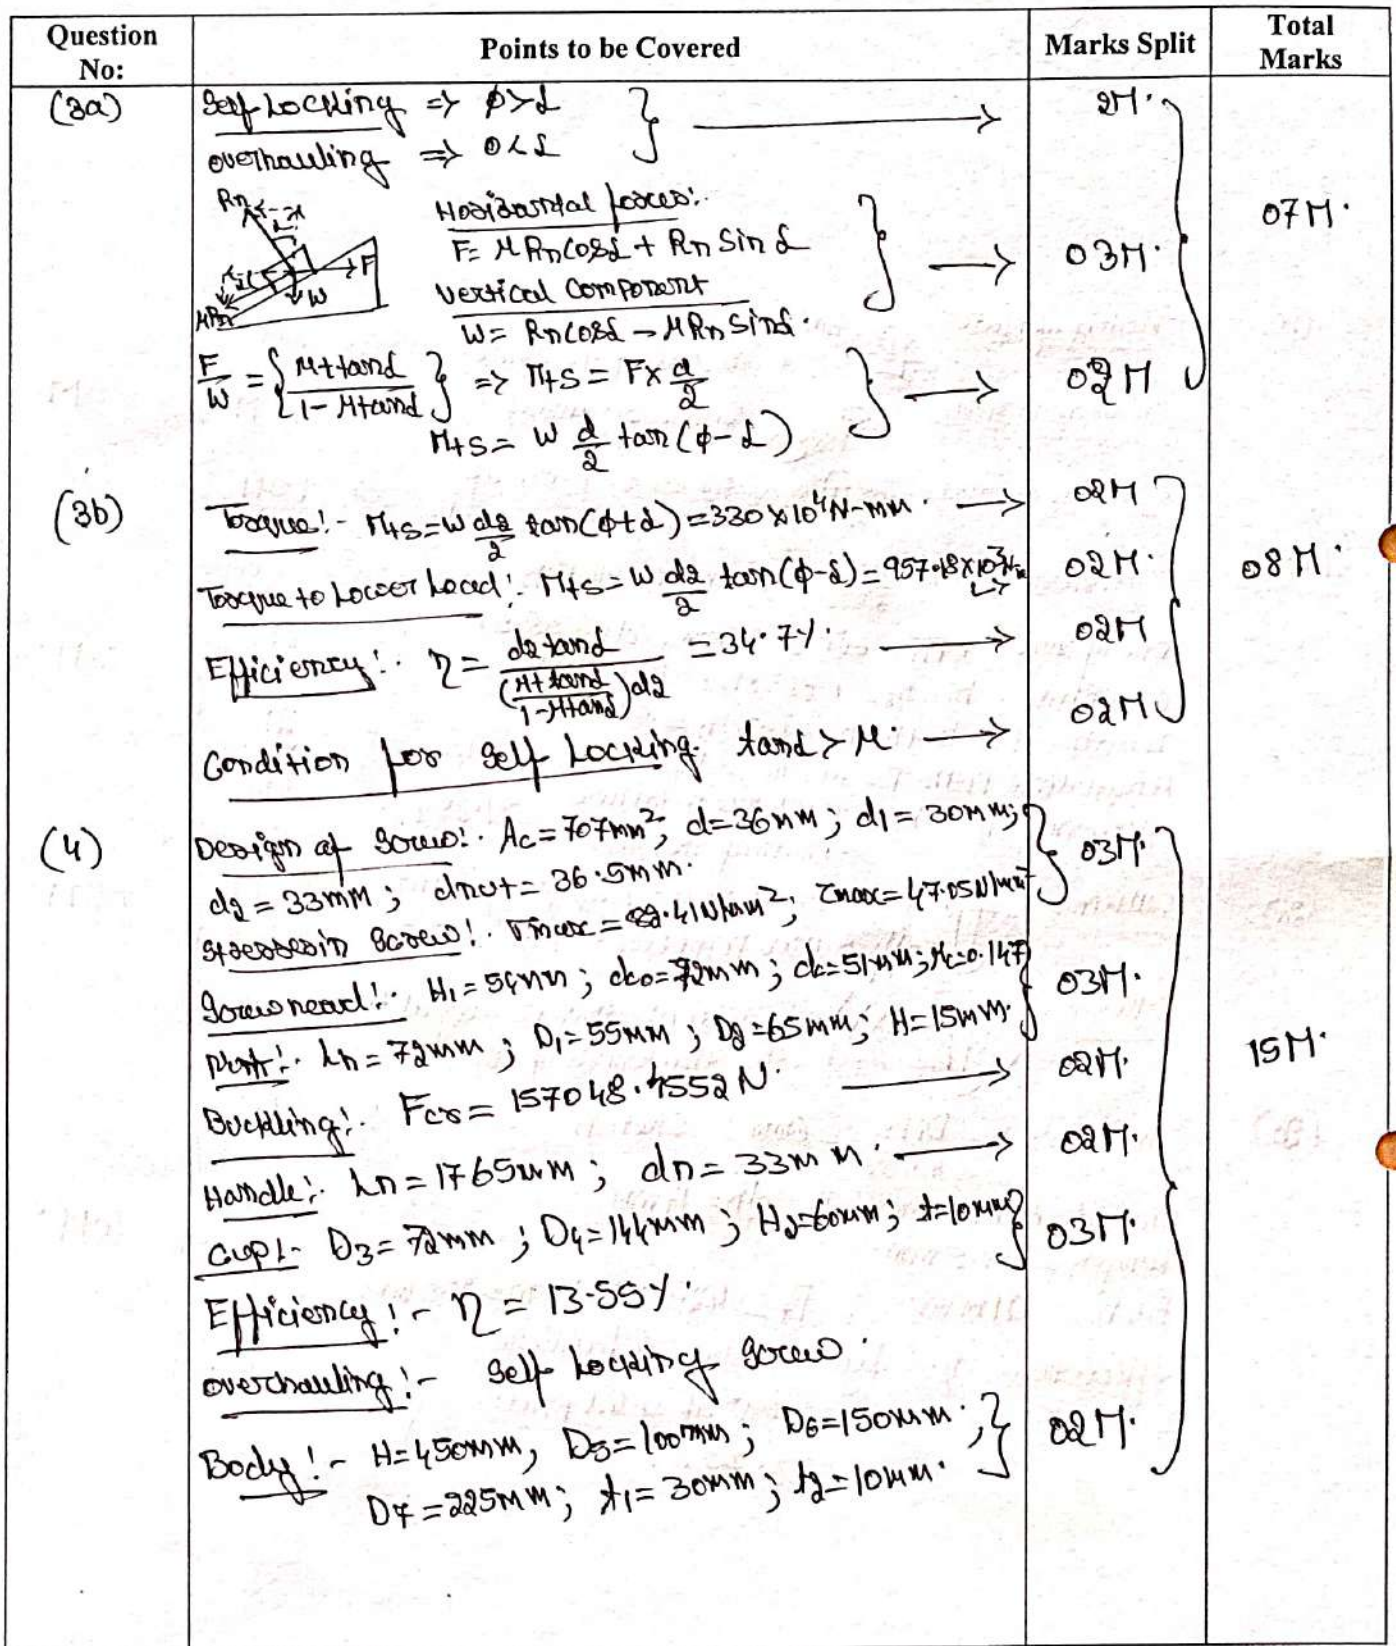 Question No:
Points to be Covered
Marks Split
Total Marks
(3a)
Self Locking => φ>α
2M.
overhauling => 0<α
Rn
α
F
W
μRn
Horizontal forces:
F= μRncosα + Rn Sin α
03M.
07M.
Vertical Component
W= Rncosα - μRn Sinα.
F/W = {μ+tanα / 1-μtanα} => Mts = F x d/2
02M
Mts = W d/2 tan(φ-α)
(3b)
Torque:- Mts=W d2/2 tan(φ+α)=330x10⁴N-mm.
02M
Torque to Lower Load: Mts=W d2/2 tan(φ-α)=957.18x10³N-m
02M.
08M.
Efficiency:. η= d2tanα / (μ+tanα / 1-μtanα)d2 = 34.7%.
02M
Condition for Self Locking. tanα > μ.
02M
(4)
Design of Screw:. Ac=707mm², d=36mm; d1=30mm;
03M.
d2=33mm; dnut= 36.5mm.
Stresses in Screw:. σmax= .41N/mm²; τmax=47.05N/mm²
Screw head:. H1=54mm; dco=72mm; dc=51mm; μc=0.147
03M.
Nut:. Ln=72mm; D1=55mm; D2=65mm; H=15mm.
15M.
Buckling:. Fcr= 157048.4552N.
02M.
Handle:. Ln=1765mm; dn= 33mm.
02M.
Cup:- D3=72mm; D4=144mm; H2=60mm; t=10mm
03M.
Efficiency:- η= 13.55%.
overhauling:- Self Locking Screw.
Body:- H=450mm, D5=100mm; D6=150mm;
02M.
D7=225mm; t1=30mm; t2=10mm.